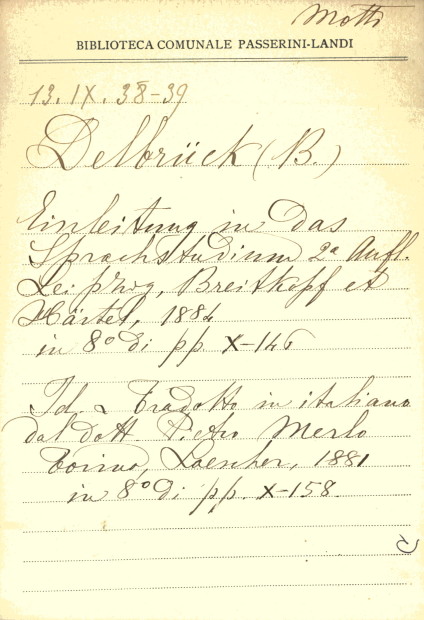 Motti
BIBLIOTECA COMUNALE PASSERINI-LANDI
13. IX. 38-39
Delbrück (B.)
Einleitung in das
Sprachstudium 2ª Aufl.
Leipzig, Breitkopf et
Härtel, 1884
in 8º di pp X-146
Id. Tradotto in italiano
dal dott Pietro Merlo
Torino, Loescher, 1881
in 8º di pp. X-158.